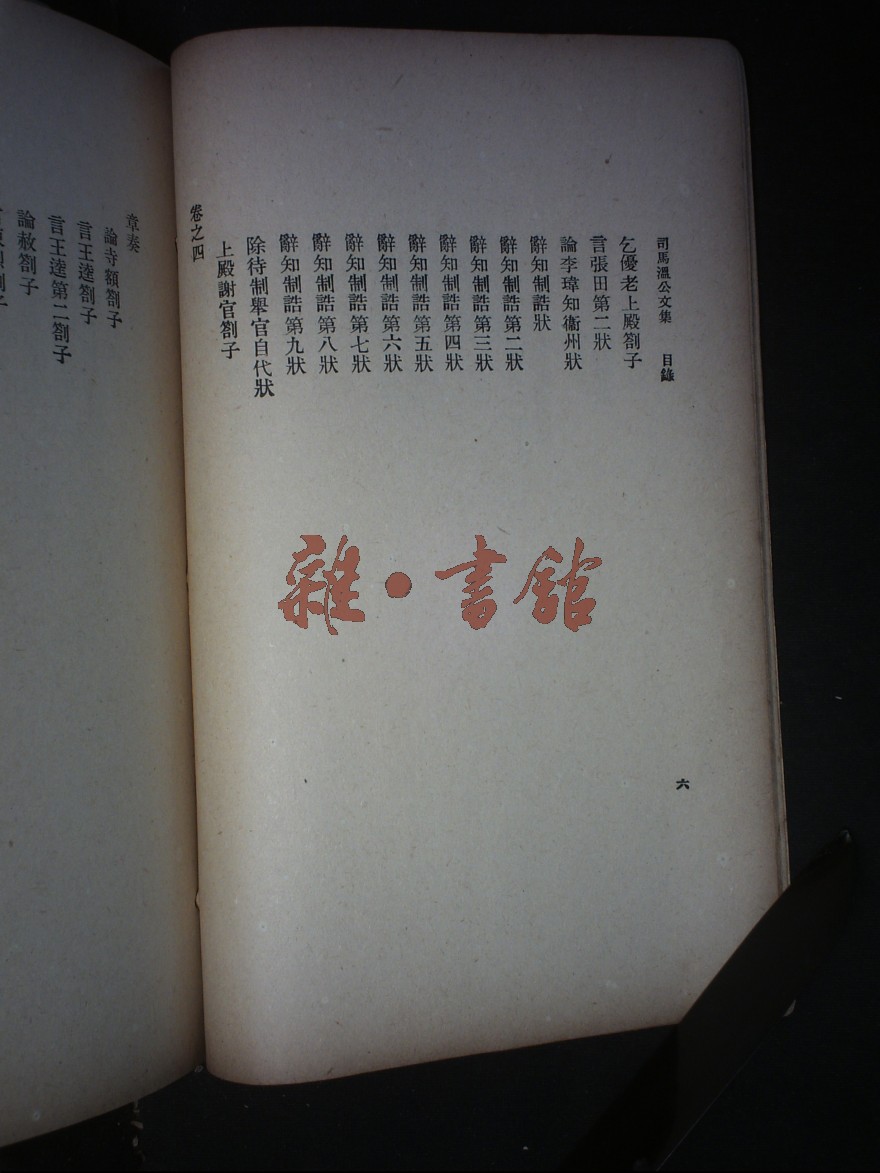 司馬溫公文集 目錄
乞優老上殿劄子
言張田第二狀
論李瑋知衞州狀
辭知制誥狀
辭知制誥第二狀
辭知制誥第三狀
辭知制誥第四狀
辭知制誥第五狀
辭知制誥第六狀
辭知制誥第七狀
辭知制誥第八狀
辭知制誥第九狀
除待制舉官自代狀
上殿謝官劄子
卷之四
六
章奏
論寺額劄子
言王逵劄子
言王逵第二劄子
論赦劄子
雜·書館